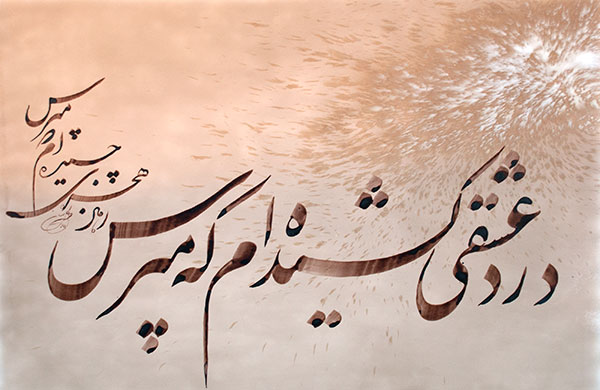 درد عشقی کشیده ام که مپرس
زهر هجری چشیده ام که مپرس